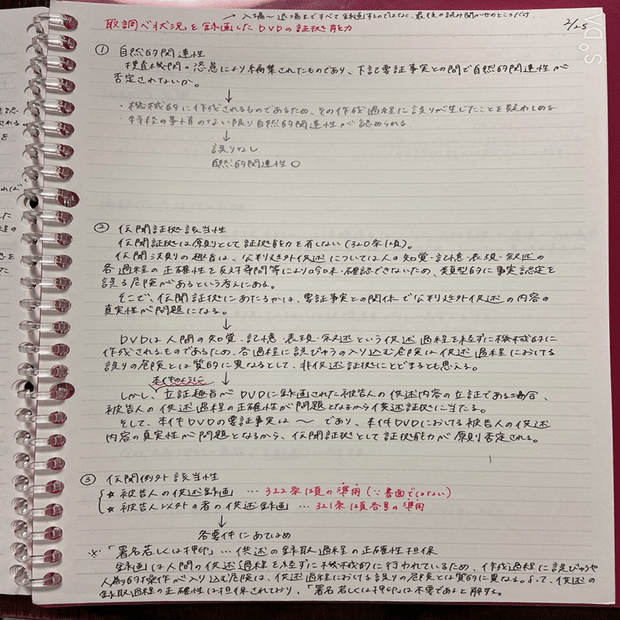 → 入場〜退場まですべて録画するのではなく、最後の読み聞かせのところだけ
取調べ状況を録画したDVDの証拠能力
2/25
SODA
① 自然的関連性
捜査機関の恣意により編集されたものであり、下記要証事実との間で自然的関連性が
否定されないか。
↓
・機械的に作成されるものであるため、その作成過程に誤りが生じたことを疑わしめる
・特段の事情のない限り自然的関連性が認められる
↓
誤りなし
自然的関連性〇
② 伝聞証拠該当性
伝聞証拠は原則として証拠能力を有しない(320条1項)。
伝聞法則の趣旨は、公判廷外供述については人の知覚・記憶・表現・叙述の
各過程の正確性を反対尋問等により吟味・確認できないため、類型的に事実認定を
誤る危険があるという点にある。
そこで、伝聞証拠にあたるかは、要証事実との関係で公判廷外供述の内容の
真実性が問題になる。
↓
DVDは人間の知覚・記憶・表現・叙述という供述過程を経ずに機械的に
作成されるものであるため、各過程に誤びゅうの入り込む危険は供述過程における
誤りの危険とは質的に異なるとして、非供述証拠にとどまるとも思える。
本件のように ↓
しかし、立証趣旨がDVDに録画された被告人の供述内容の立証である場合、
被告人の供述過程の正確性が問題となるから供述証拠に当たる。
そして、本件DVDの要証事実は〜であり、本件DVDにおける被告人の供述
内容の真実性が問題となるから、伝聞証拠として証拠能力が原則否定される。
③ 伝聞例外該当性
☆ 被告人の供述録画 … 322条1項の準用(∵書面ではない)
☆ 被告人以外の者の供述録画 … 321条1項各号の準用
↓
各要件にあてはめ
※「署名若しくは押印」… 供述の録取過程の正確性担保
録画は人間の供述過程を経ずに機械的に行われているため、作成過程に誤びゅうや
人為的操作が入り込む危険は、供述過程における誤りの危険とは質的に異なる。よって、供述の
録取過程の正確性は担保されており、「署名若しくは押印」は不要であると解する。